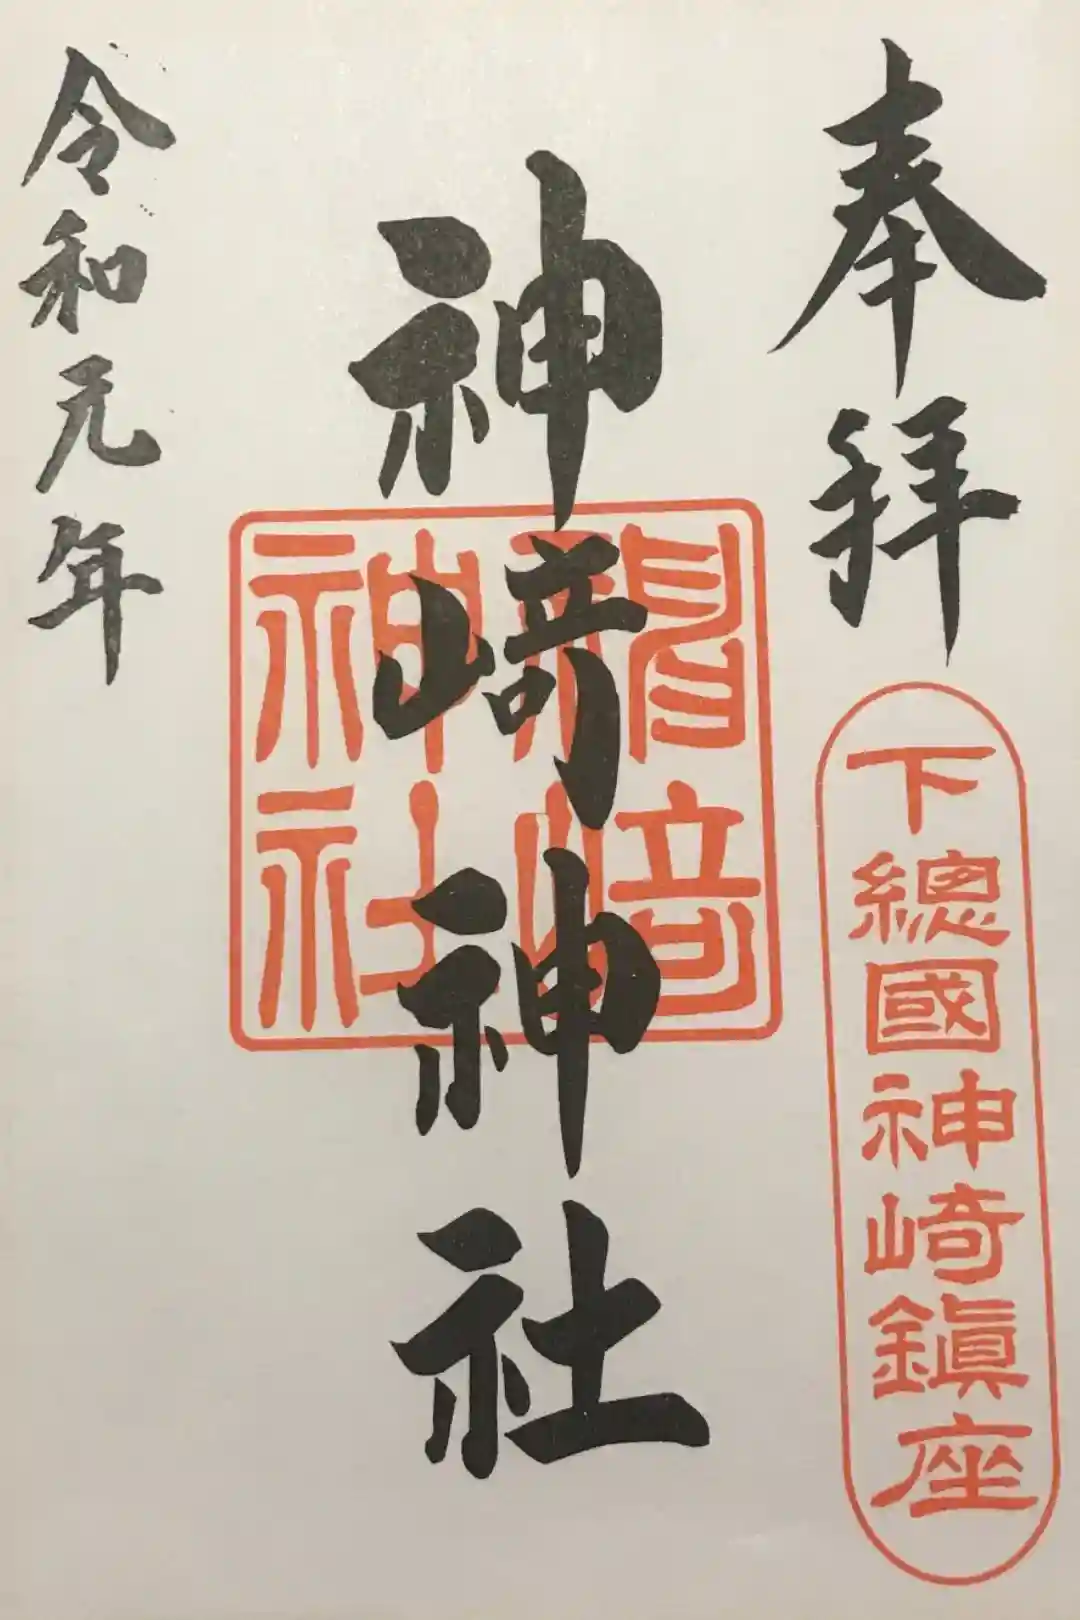 奉拝
下總國神崎鎮座
神崎神社
神崎神社
令和元年